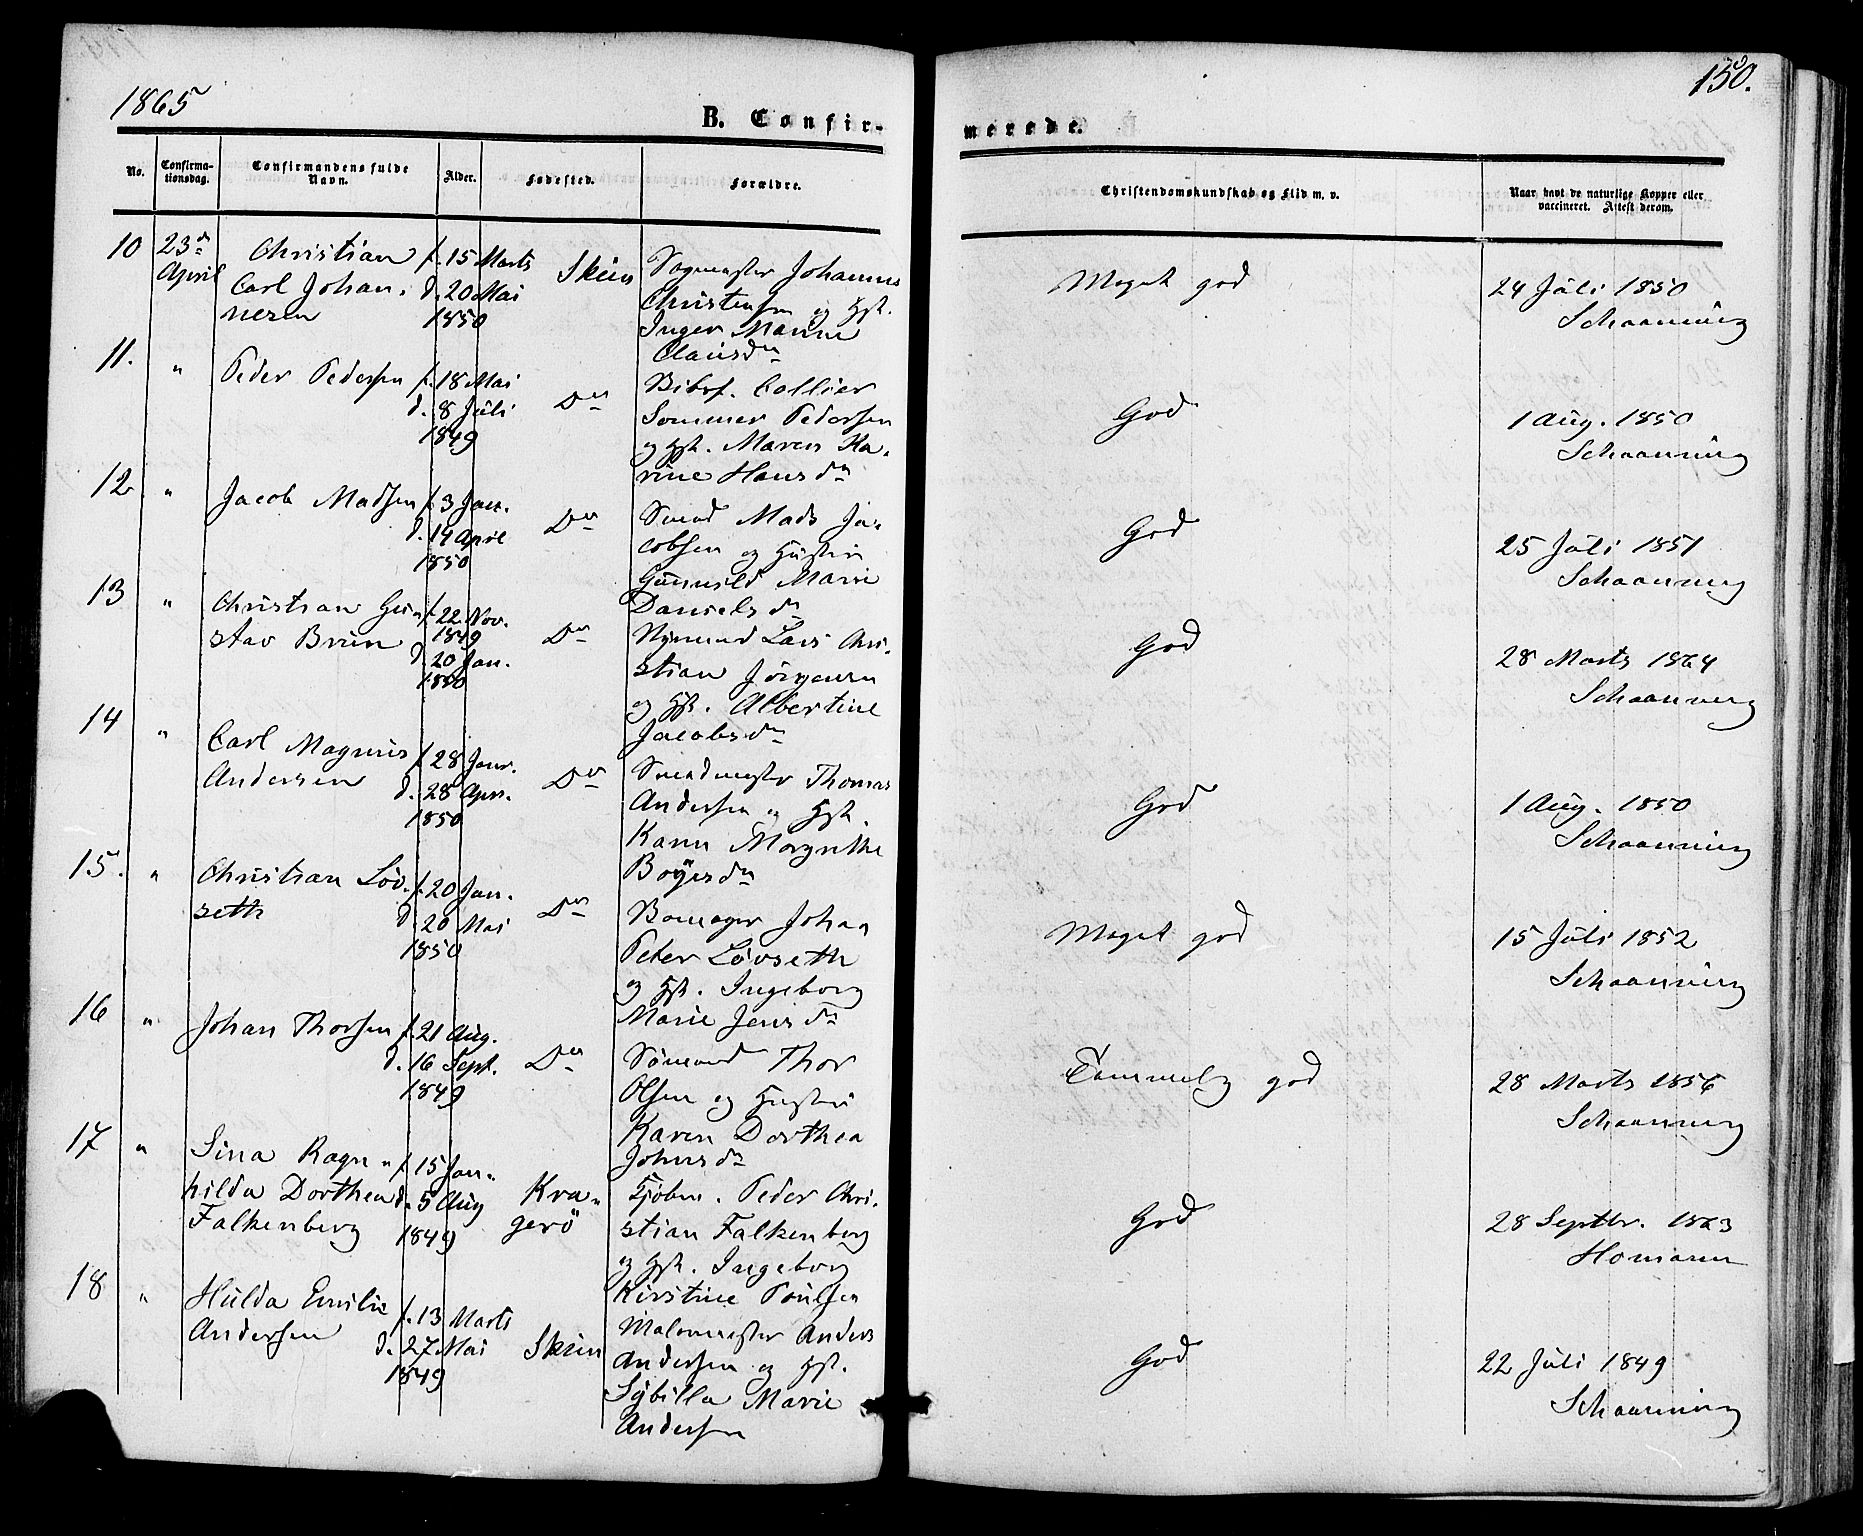 1865
150.
B. Confir-
merede.
No.
Confirma-
tionsdag.
Confirmandens fulde
Navn.
Alder.
Fødested.
Forældre.
Christendomskundskab og Flid m. v.
Naar havt de naturlige Kopper eller
vaccineret. Attest derom.
10 23de April
Christian
Carl Johan-
nesen
f. 15 Marts
d. 20 Mai
1850
Skien
Sagmester Johannes
Christensen og Hst.
Inger Marie
Clausdn
Meget god
24 Juli 1850
Schaanning
11. " Peder Pedersen
f. 18 Mai
d. 8 Juli
1849
Do
Collier
Sommer Pedersen
og Hst. Maren Ka-
rine Hansdn
God
1 Aug. 1850
Schaanning
12 " Jacob Madsen
f. 3 Jan.
d. 14 April
1850
Do
Smed Mads Ja-
cobsen og Hustru
Gunnild Marie
Danielsdn
God
25 Juli 1851
Schaanning
13 " Christian Gu-
stav Brun
f. 22 Nov.
1849
d. 20 Jan.
1850
Do
Lars Chri-
stian Jörgensen
og Hst. Albertine
Jacobsdn
God
28 Marts 1864
Schaanning
14 " Carl Magnus
Andersen
f. 28 Janr.
d. 28 Apr.
1850
Do
Smedmester Thomas
Andersen og Hst.
Karen Margrethe
Böyesdn
God
1 Aug. 1850
Schaanning
15. " Christian Löv-
seth
f. 20 Jan.
d. 20 Mai
1850
Do
Johan
Peter Lövseth
og Hst. Ingeborg
Marie Jensdn
Meget god
15 Juli 1852
Schaanning
16 " Johan Thorsen
f. 21 Aug.
d. 16 Sept.
1849
Do
Sömand Thor
Olsen og Hustru
Karen Dorthea
Johnsdn
Temmelig god
28 Marts 1856
Schaanning
17 " Sina Ragn-
hilda Dorthea
Falkenberg
f. 15 Jan.
d. 5 Aug
1849
Kra-
gerö
Kjöbm. Peder Chri-
stian Falkenberg
og Hst. Ingeborg
Kirstine Poulsen
God
28 Septbr. 1863
Homann
18 " Hulda Emilie
Andersen
f. 13 Marts
d. 27 Mai
1849
Skien
Malermester Anders
Andersen og Hst.
Sybilla Marie
Andersen
God
22 Juli 1849
Schaanning